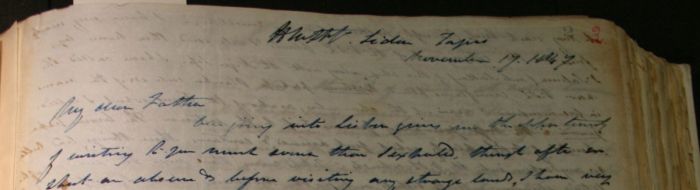 HMS St. Lidon Tagus
November 17. 1847.
My dear Father
going into Lisbon gives me the opportunity
of writing to you much sooner than I expected, though after so
short an absence & before visiting any strange lands, I have very